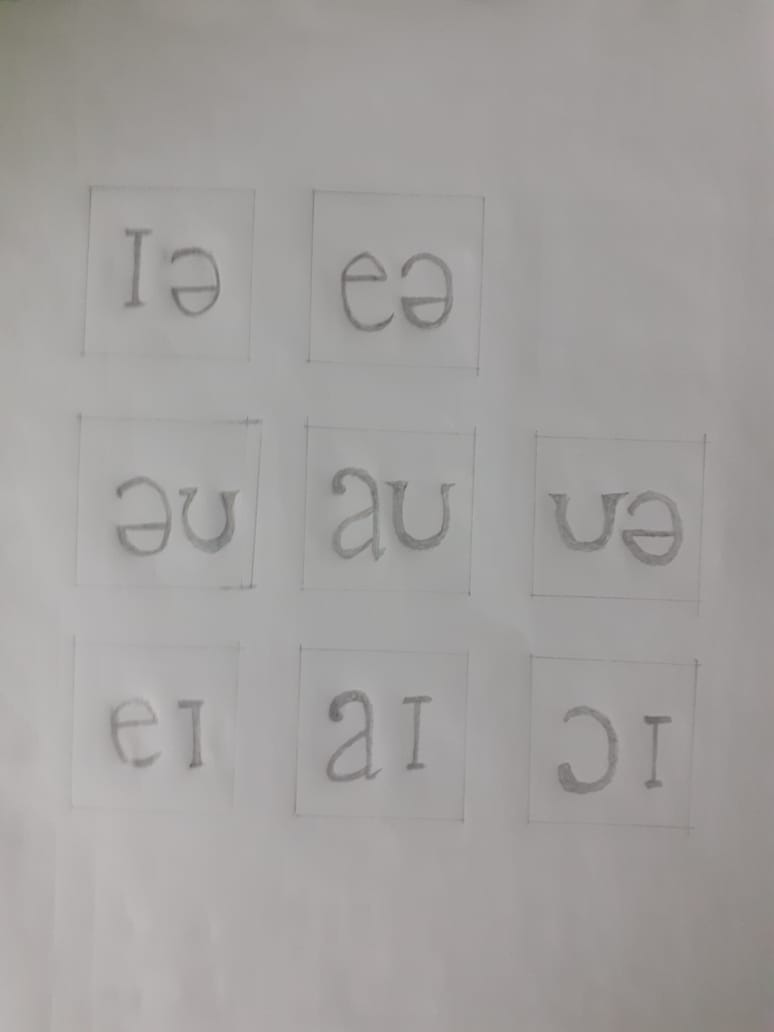 ɪə eə
əʊ aʊ ʊə
eɪ aɪ ɔɪ